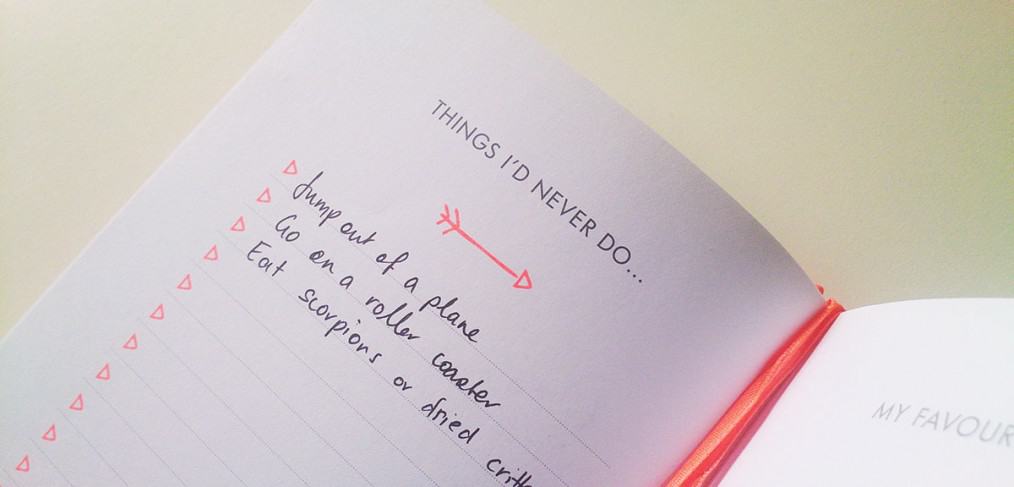 THINGS I'D NEVER DO...
Jump out of a plane
Go on a roller coaster
Eat scorpions or dried
MY FAVOUR